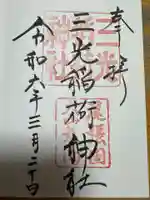 奉拝
三光稲荷神社
令和六年三月二十日